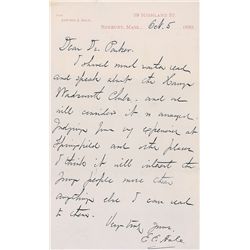 39 HIGHLAND ST.
ROXBURY, MASS. Oct. 5 189
Dear Dr. Parker.
I should much rather read
and speak about the
Wadsworth Club. and we
will consider it as arranged.
Judging from my experience at
Springfield and other places
I think it will interest the
young people more than
anything else I can read
to them.
Very truly yours
E. E. Hale